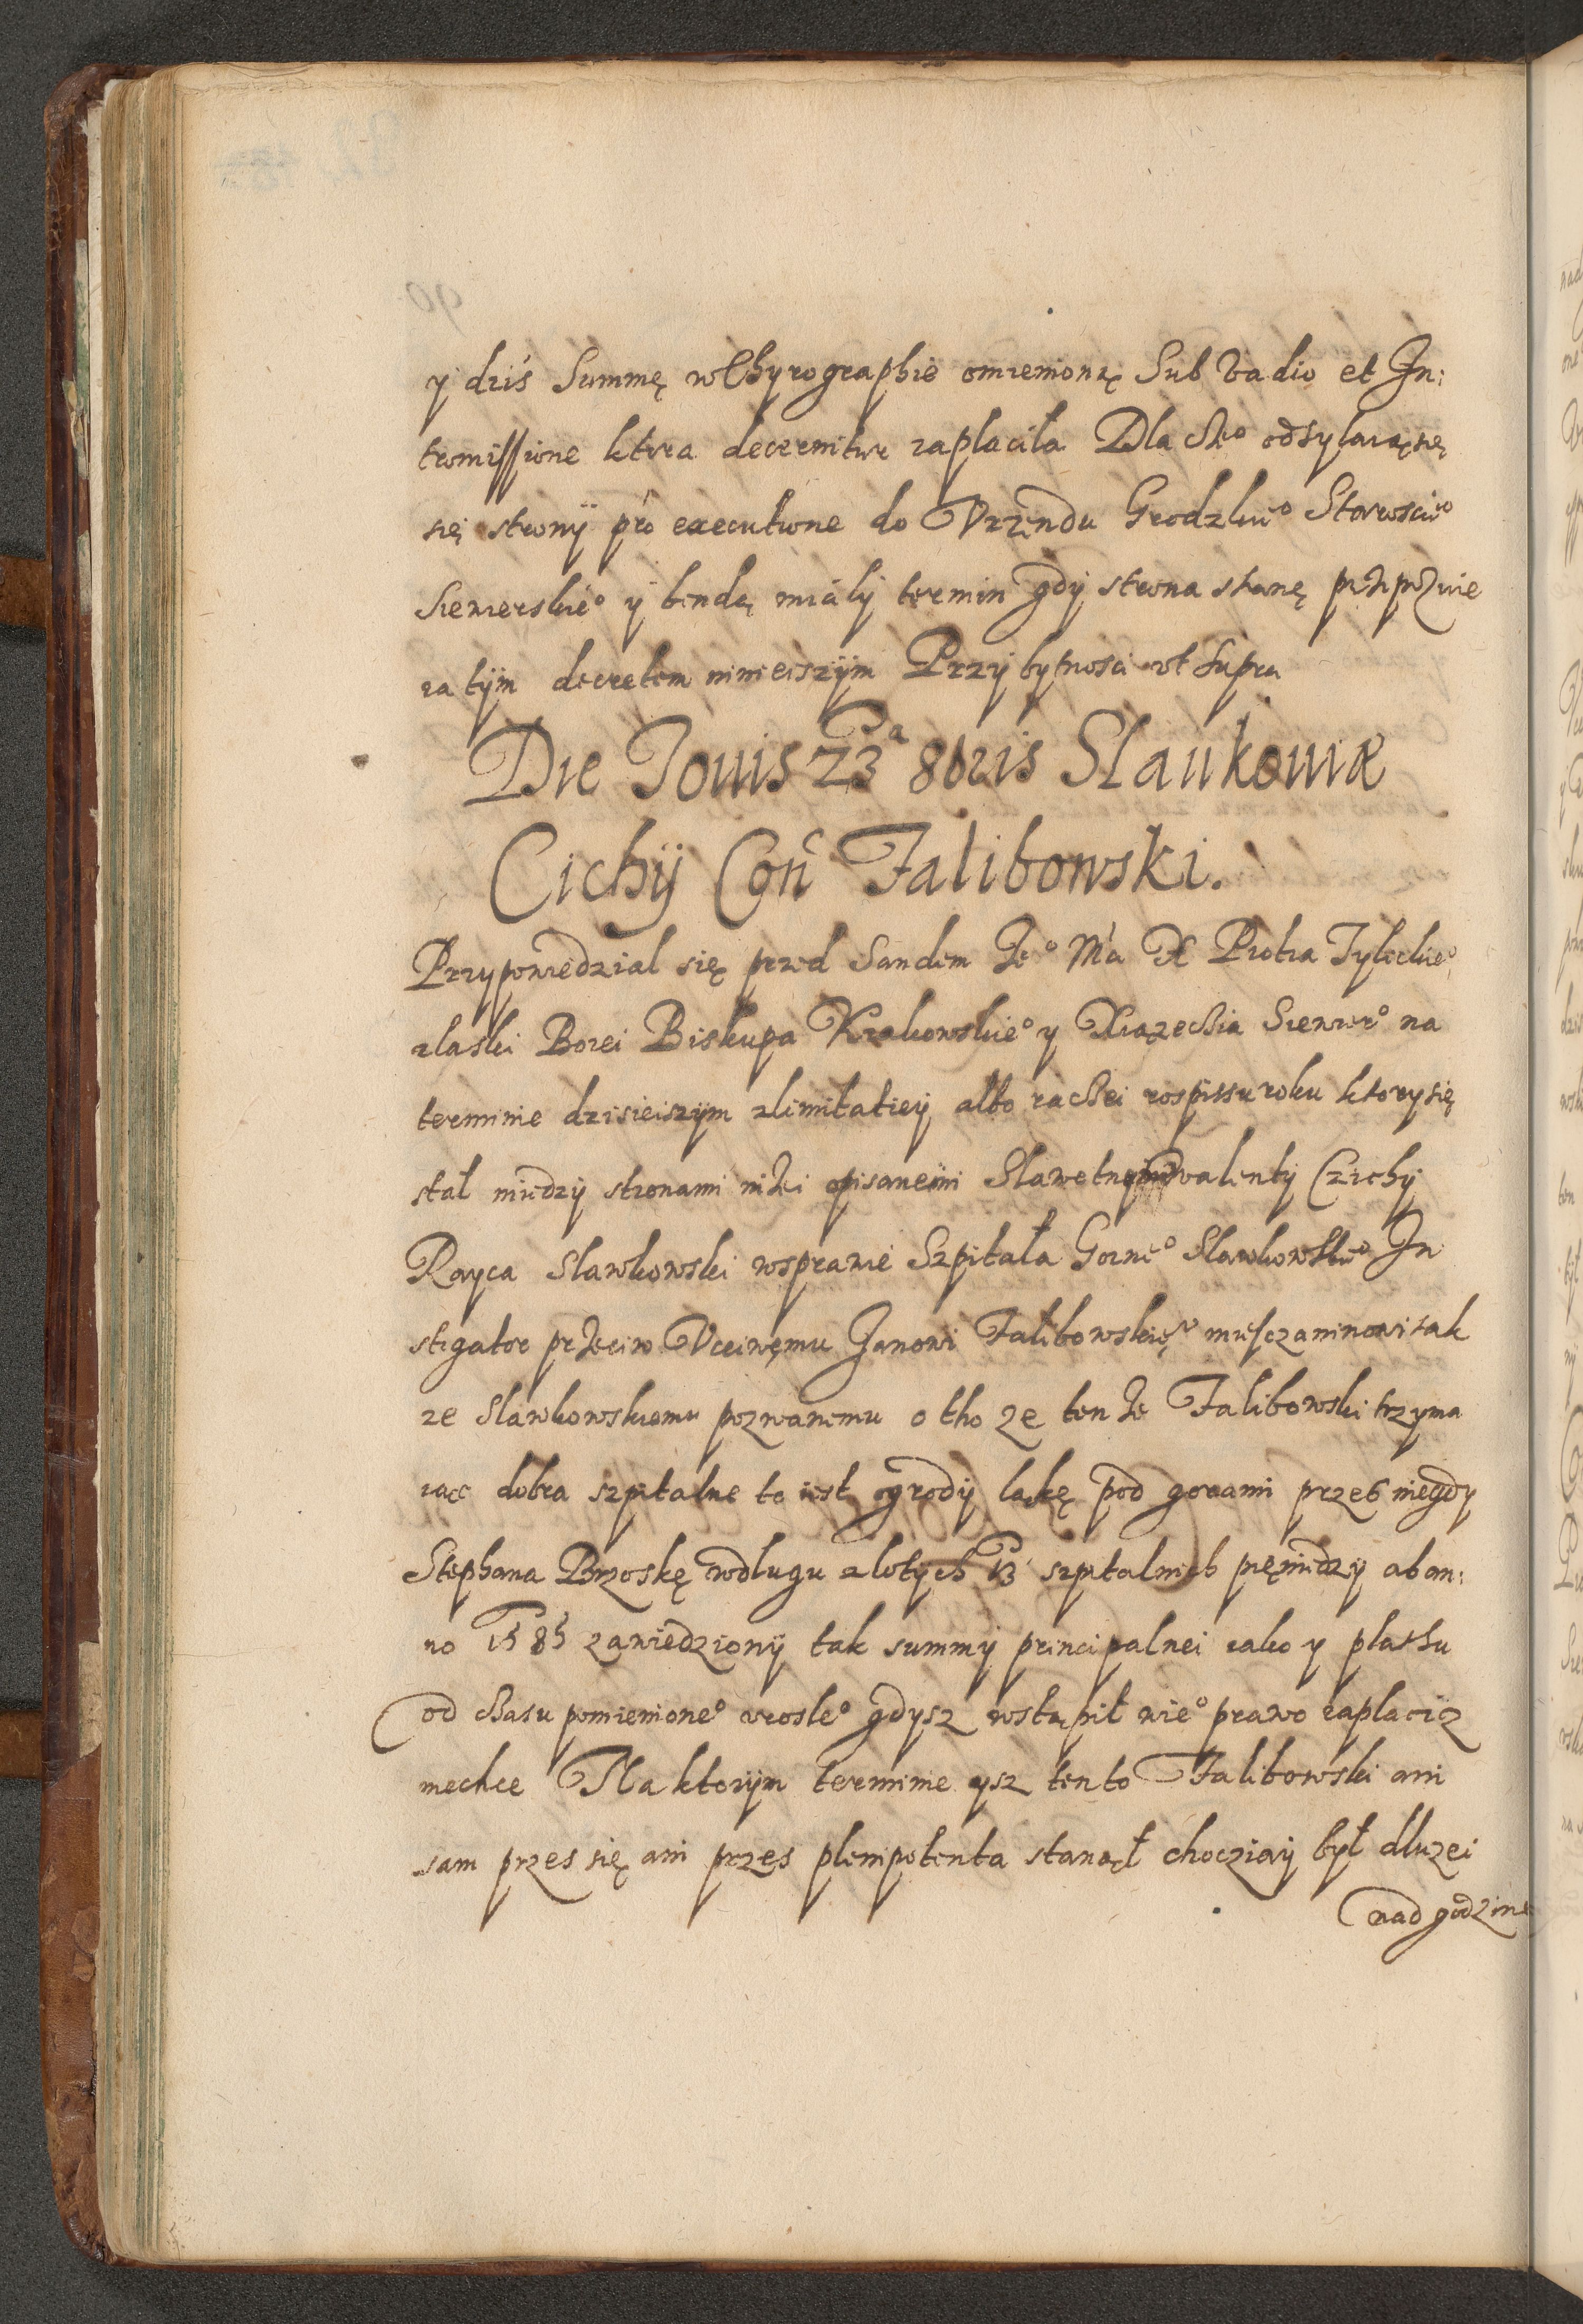 y dziś Summę w Chyrographie omienionę Sub Vadio et In:
tromissione ktora decernitur zaplaciła Dla cze° odsylaią się
się strony pro executione do Vrzendu Grodzkie° Staroście°
Siewierskie° y bendą mialy termin gdy strona stronę przypozwie
za tym decretem ninieiszym Przy bytnosci vt supra
Die Iouis 23a 8bris Slaukouiæ
Cichÿ Con Falibowski.
Przypowiedzial się przed Sandem Je° Mci X Piotra Tylickie°
zlaski Bozei Biskupa Krakowskie° y Xiązęcia Siewier° na
terminie dzisieiszym zlimitatiey albo raczei rospissu roku ktory się
stał między stronami niżei opisanemi Slawetny Walenty Czichy
Rayca Slawkowski wsprawie Szpitala Gorne° Slawkowskie° In
stigator przeciw Vcciwęmu Janowi Falibowskię° miesczaninowi tak
ze Slawkowskiemu pozwanemu o tho ze ten że Falibowski trzyma
iąc dobra szpitalne to iest ogrody łąkę pod gorami przes niegdy
Stephana Brzoskę wdlugu zlotych 13 szpitalnich pięniędzy ab an:
no 1585 zawiedziony tak summy principalnei iako y płatłu
od czasu pomienione° vrosłe° gdysz wstąpił wie° prawo zaplacicz
niechce Na ktorym terminie ysz ten to Falibowski ani
sam przes się ani przęs plenipotenta stanął chocziay był dluzei
nad godzine